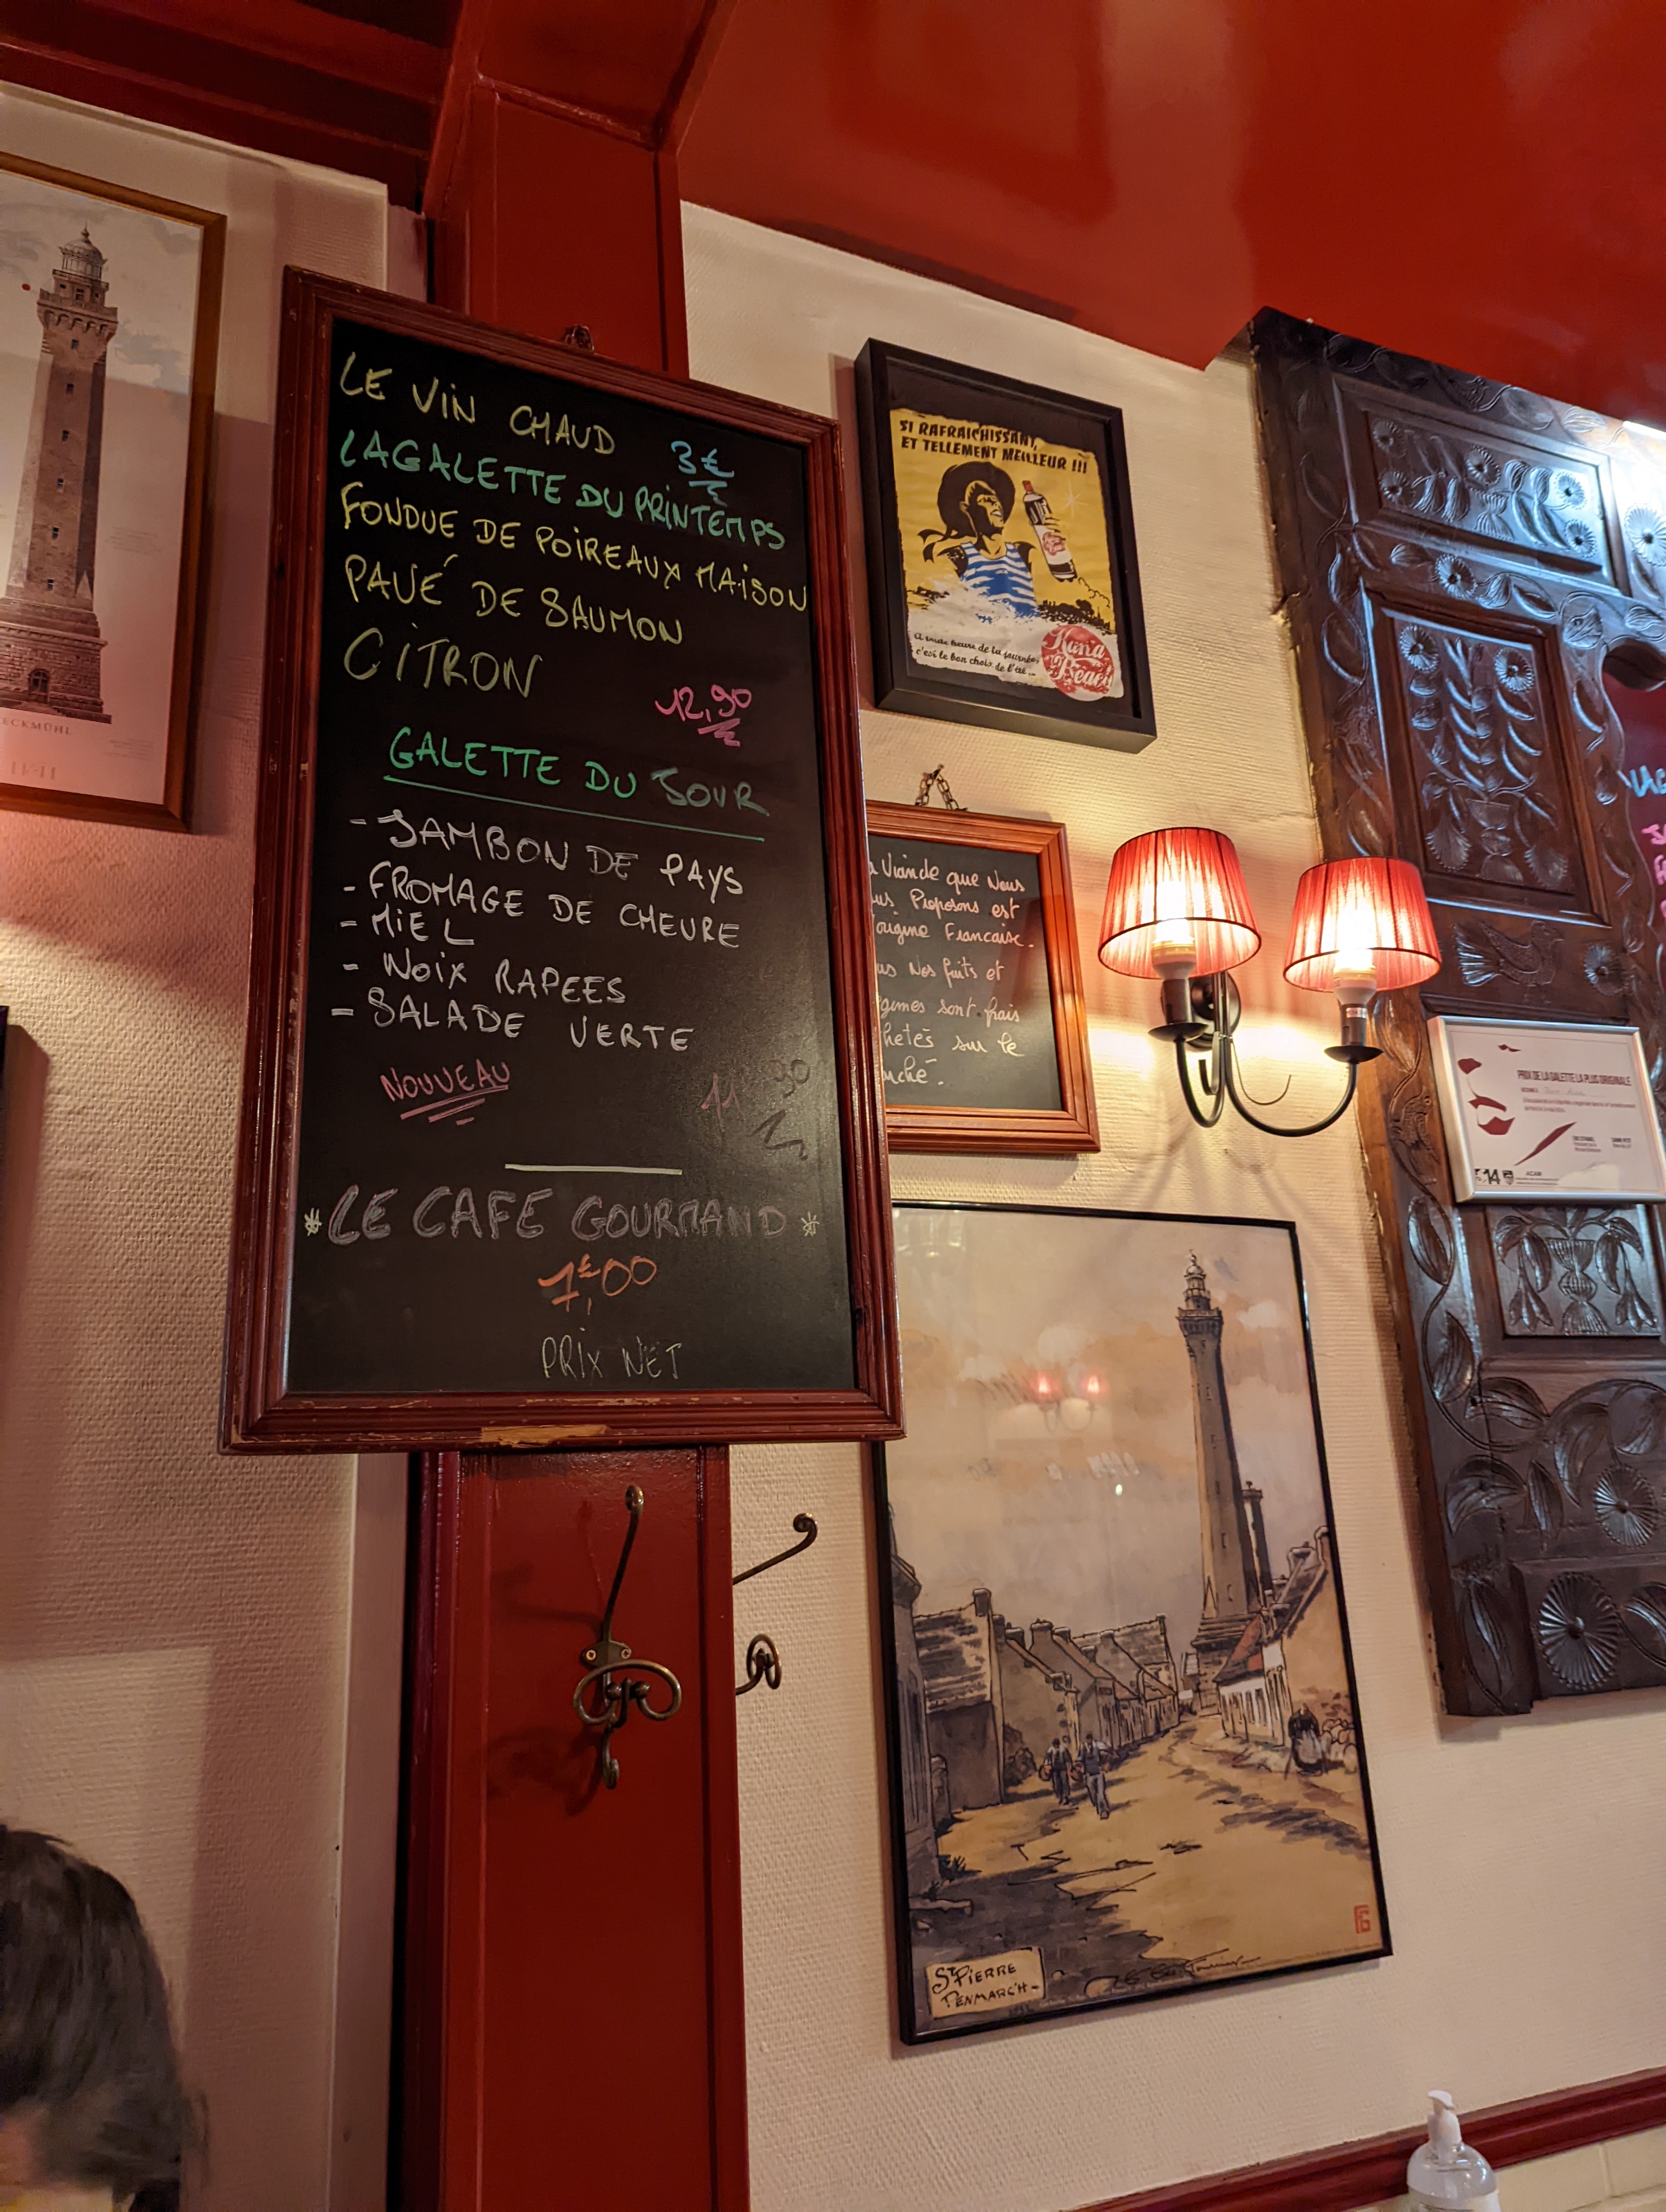 LE VIN CHAUD 3€
LA GALETTE DU PRINTEMPS
FONDUE DE POIREAUX MAISON
PAVÉ DE SAUMON
CITRON
12,90
GALETTE DU JOUR
- JAMBON DE PAYS
- FROMAGE DE CHEVRE
- MIEL
- NOIX RAPEES
- SALADE VERTE
NOUVEAU
11 90
* LE CAFE GOURMAND *
7€,00
PRIX NET
ECKMÜHL
SI RAFRAICHISSANT,
ET TELLEMENT MEILLEUR !!!
A toute heure de la journée
c'est le bon choix de l'été...
Kuna
Beach
Viande que Nous
us Proposons est
origine Francaise.
us Nos fuits et
gumes sont frais
hetès sur le
rché.
PRIX DE LA GALETTE LA PLUS ORIGINALE
14
ST PIERRE
PENMARC'H -
FG